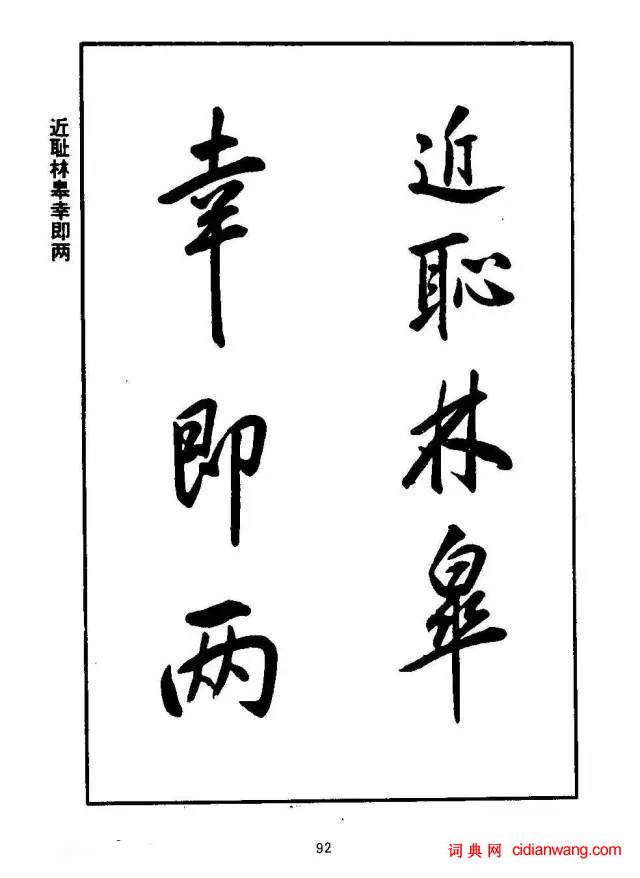 近恥林皋
幸即两
近耻林皋幸即两
92
词典网 cidianwang.com